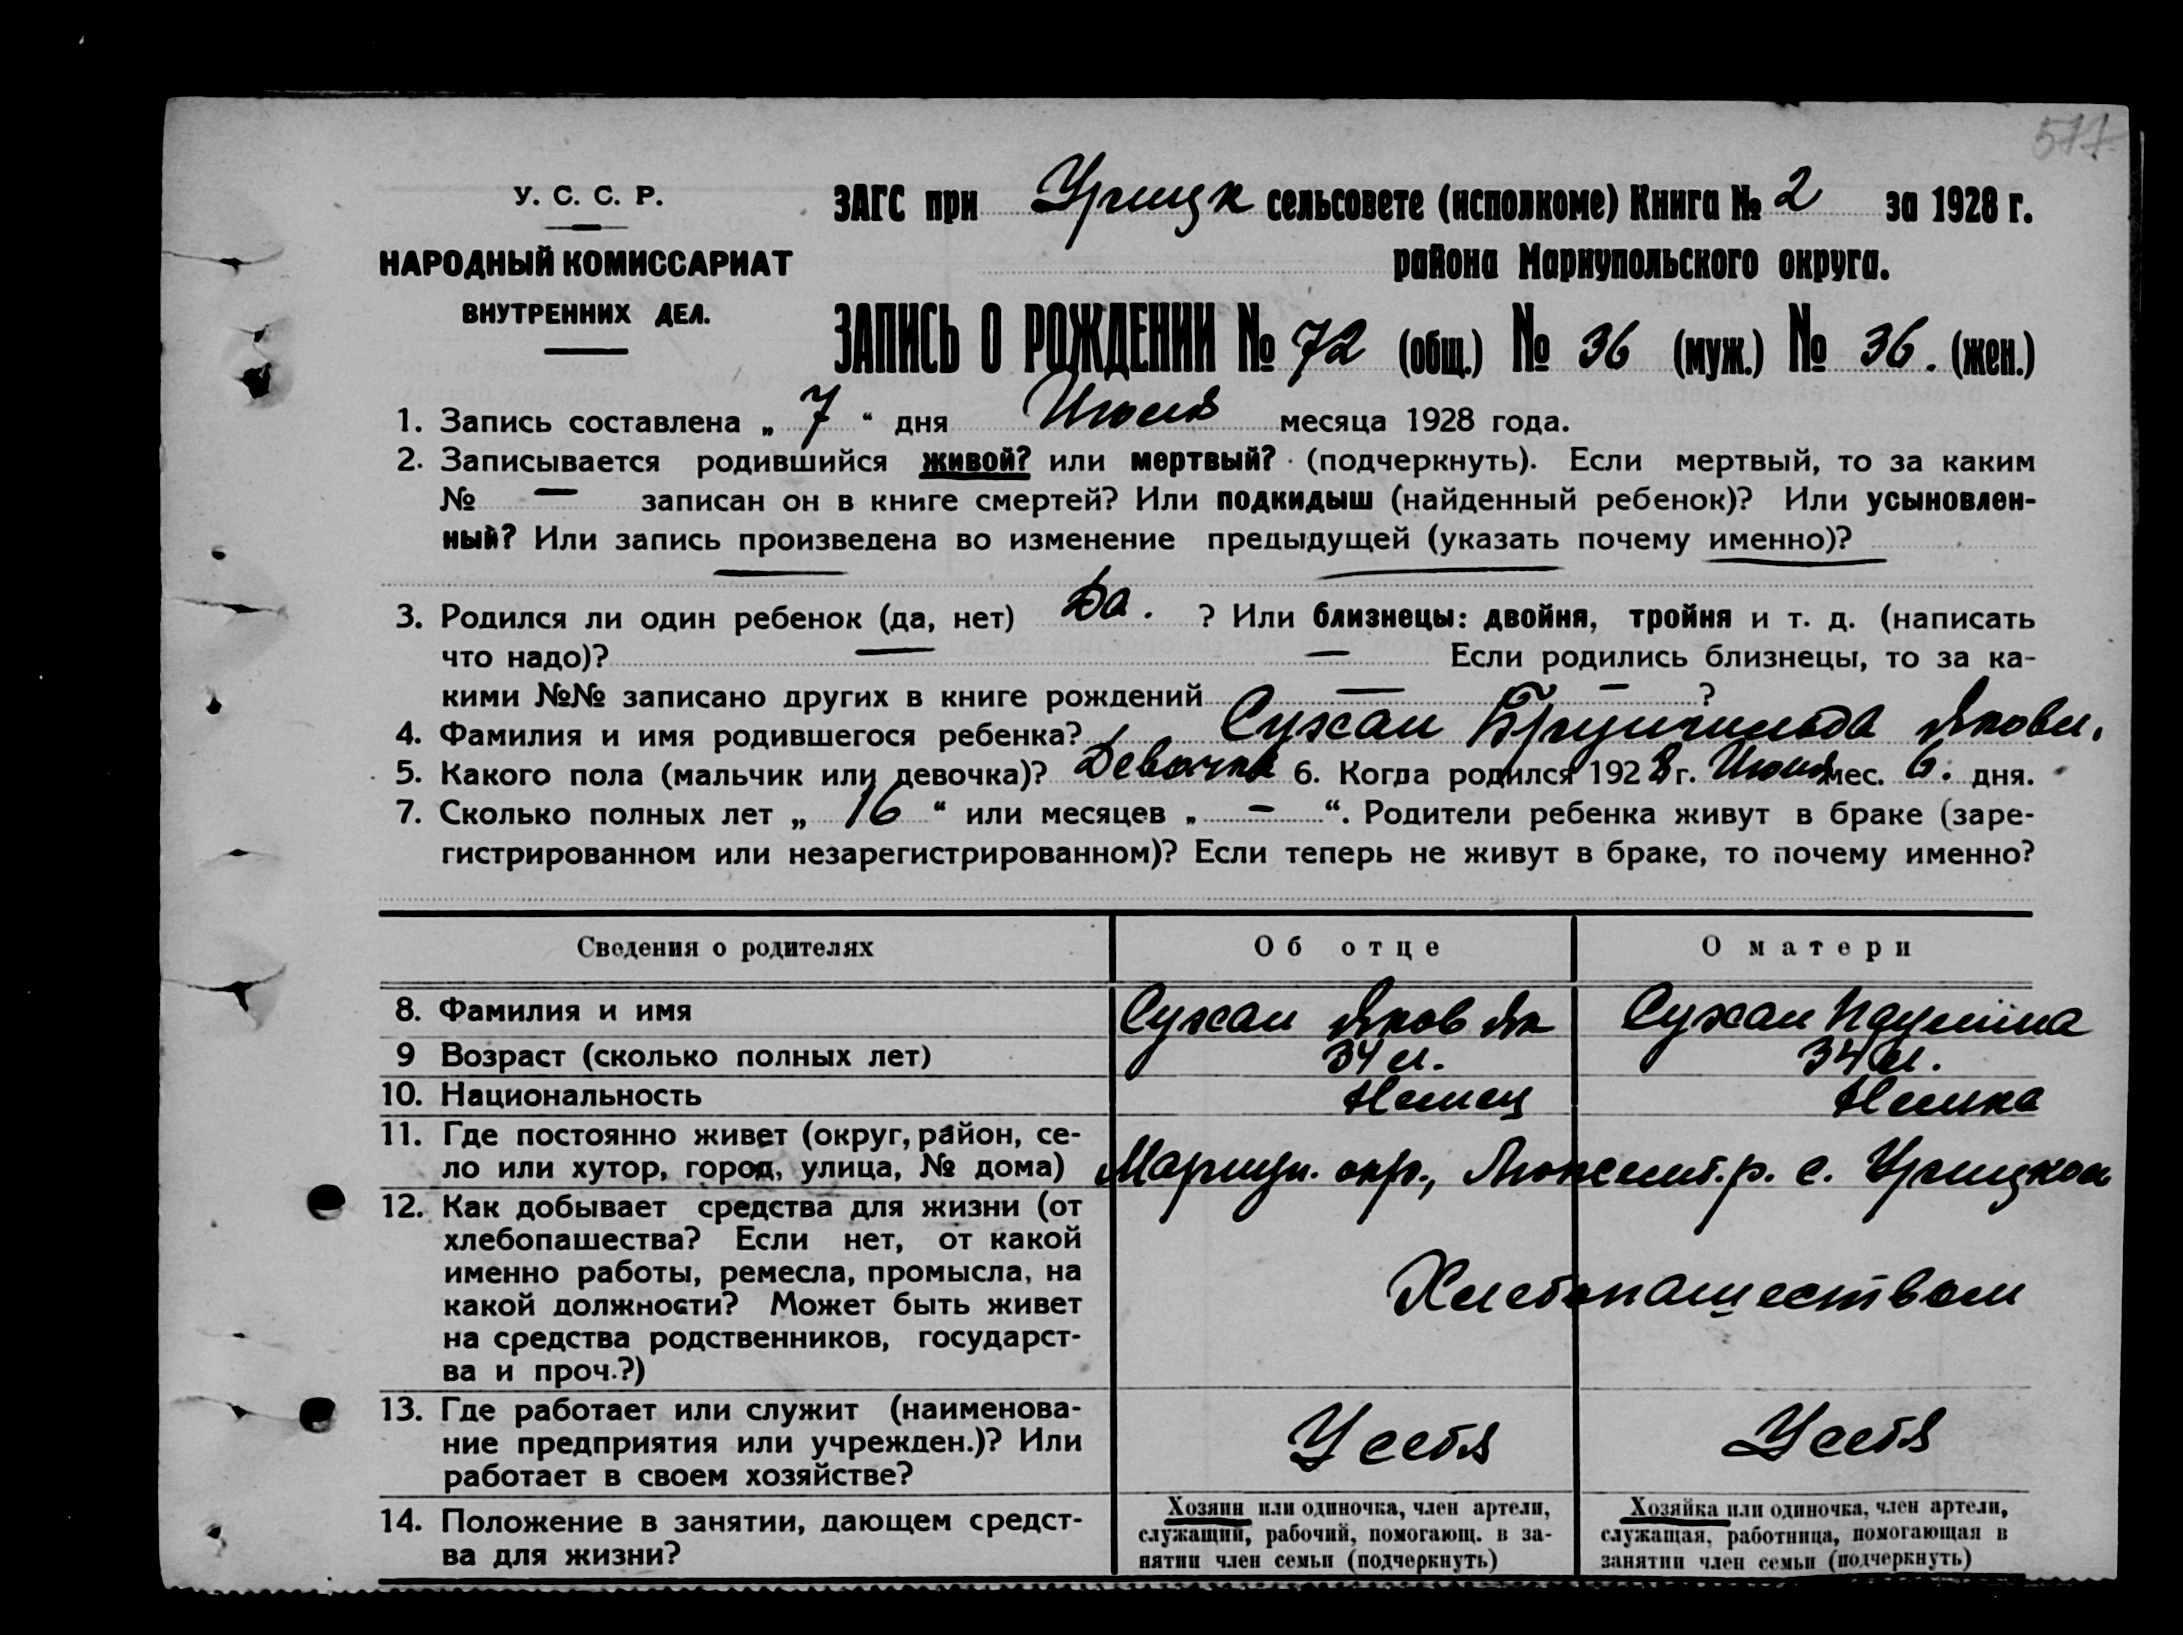 577
У. С. С. Р.
НАРОДНЫЙ КОМИССАРИАТ
ВНУТРЕННИХ ДЕЛ.
ЗАГС при Урицк сельсовете (исполкоме) Книга № 2 за 1928 г.
района Мариупольского округа.
ЗАПИСЬ О РОЖДЕНИИ № 72 (общ.) № 36 (муж.) № 36. (жен.)
1. Запись составлена „ 7 “ дня Июля месяца 1928 года.
2. Записывается родившийся живой? или мертвый? (подчеркнуть). Если мертвый, то за каким
№ — записан он в книге смертей? Или подкидыш (найденный ребенок)? Или усыновлен-
ный? Или запись произведена во изменение предыдущей (указать почему именно)?
3. Родился ли один ребенок (да, нет) Да. ? Или близнецы: двойня, тройня и т. д. (написать
что надо)? — — Если родились близнецы, то за ка-
кими №№ записано других в книге рождений — — ?
4. Фамилия и имя родившегося ребенка? Сужан Брунгильда Якови.
5. Какого пола (мальчик или девочка)? Девочка 6. Когда родился 1928 г. мес. 6. дня.
7. Сколько полных лет „ 16 “ или месяцев „ — “. Родители ребенка живут в браке (заре-
гистрированном или незарегистрированном)? Если теперь не живут в браке, то почему именно?
Сведения о родителях Об отце О матери
8. Фамилия и имя Сужан Яков Як Сужан
9 Возраст (сколько полных лет) 34 л. 34 л.
10. Национальность Немец Немка
11. Где постоянно живет (округ, район, се-
ло или хутор, город, улица, № дома) Мариуп. окр., Люксемб. р. с. Урицкое
12. Как добывает средства для жизни (от
хлебопашества? Если нет, от какой
именно работы, ремесла, промысла, на
какой должности? Может быть живет
на средства родственников, государст-
ва и проч.?)
Хлебопашеством
13. Где работает или служит (наименова-
ние предприятия или учрежден.)? Или
работает в своем хозяйстве?
У себя У себя
14. Положение в занятии, дающем средст-
ва для жизни?
Хозяин или одиночка, член артели,
служащий, рабочий, помогающ. в за-
нятии член семьи (подчеркнуть)
Хозяйка или одиночка, член артели,
служащая, работница, помогающая в
занятии член семьи (подчеркнуть)